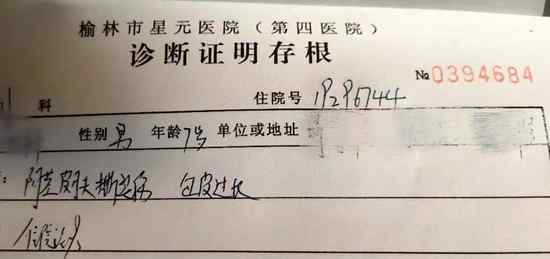 榆林市星元医院(第四医院)
诊断证明存根
№0394684
科 住院号 1P2P6744
性别 男 年龄 7岁 单位或地址
阴茎皮肤撕裂伤 包皮过长
住院治疗